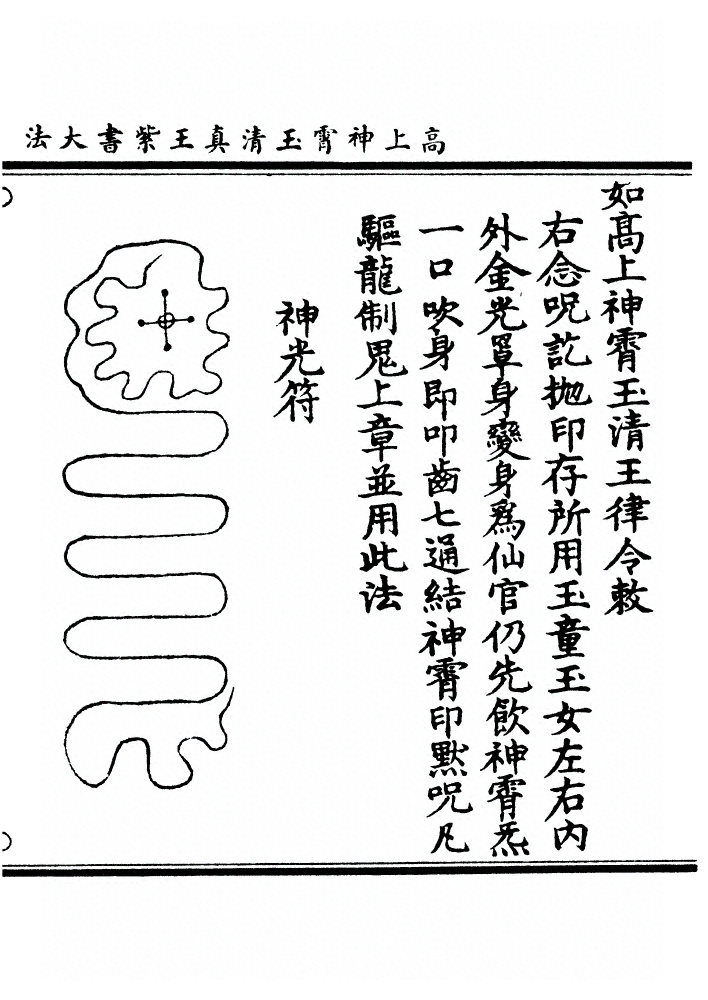 高上神霄玉清真王紫書大法
如髙上神霄玉清王律令敕
右念呪訖抛印存所用玉童玉女左右内
外金光罩身變身爲仙官仍先飲神霄炁
一口吹身即叩齒七通結神霄印黙呪凡
驅龍制鬼上章並用此法
神光符